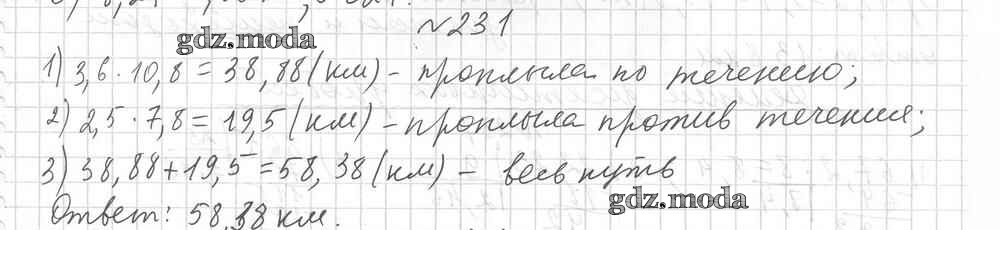 №231
gdz.moda
1) 3,6 · 10,8 = 38,88 (км) - проплыла по течению;
2) 2,5 · 7,8 = 19,5 (км) - проплыла против течения;
3) 38,88 + 19,5 = 58,38 (км) - весь путь
gdz.moda
Ответ: 58,38 км.